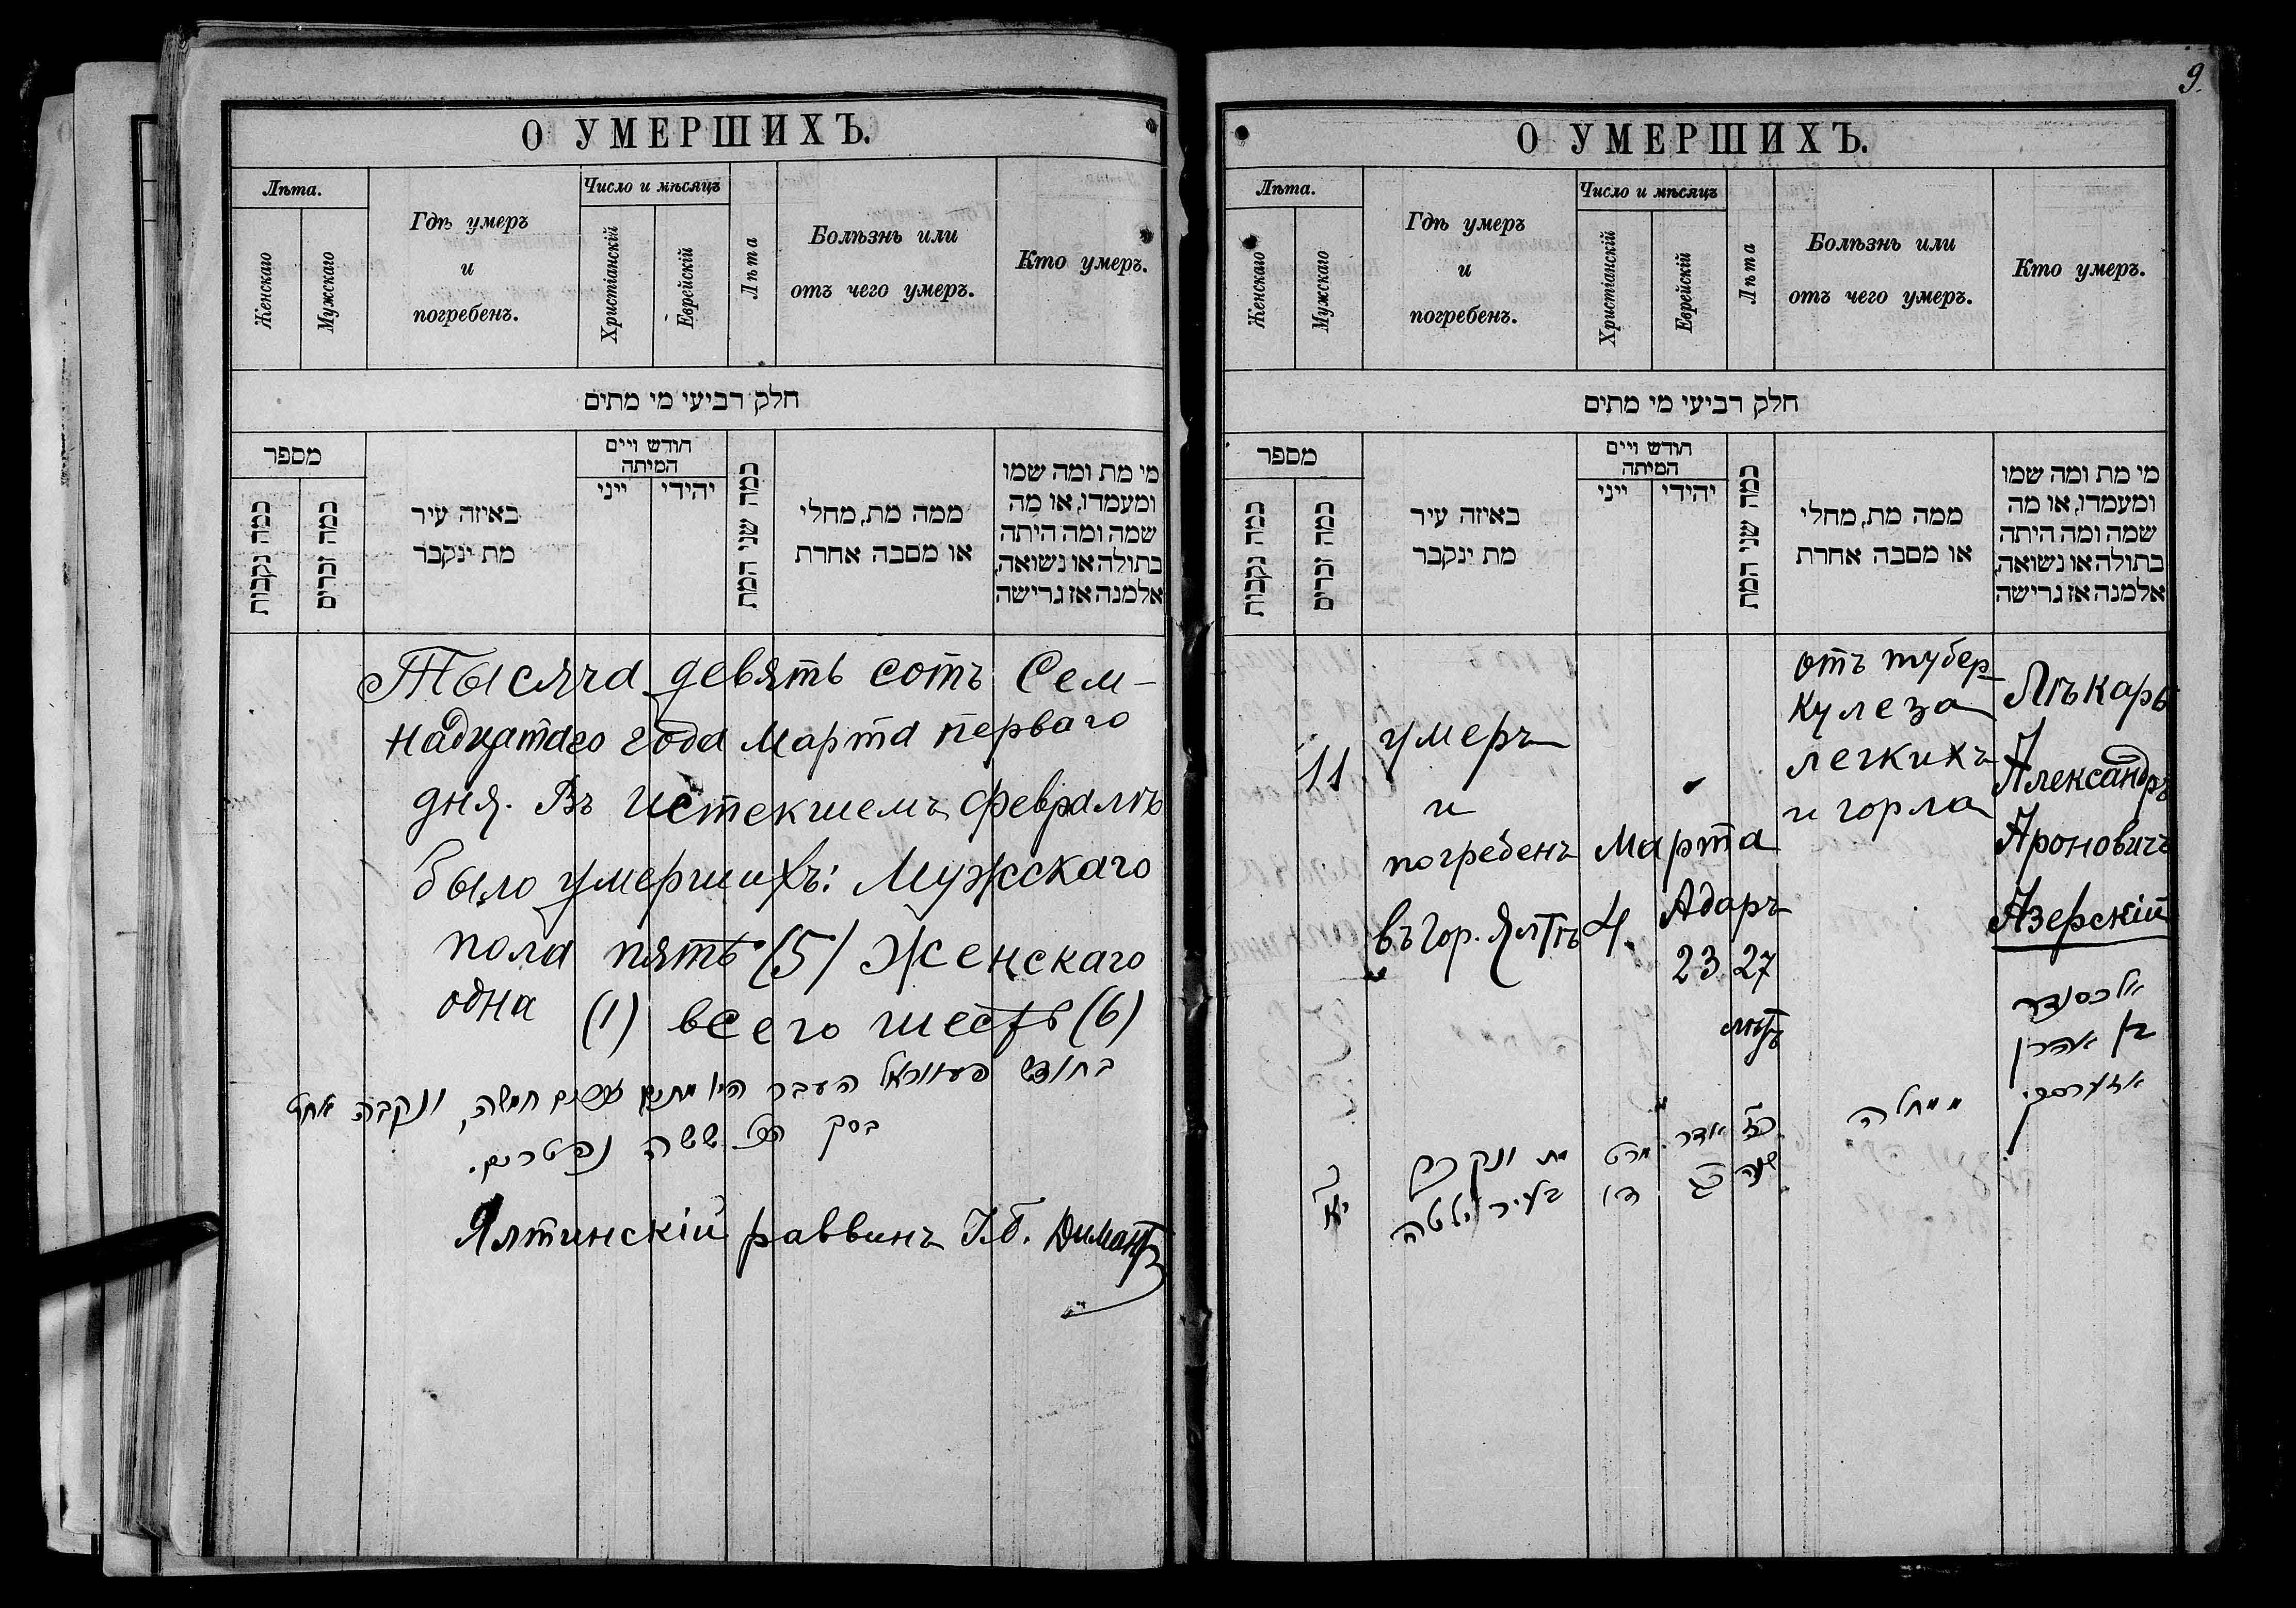 О УМЕРШИХЪ.
Лѣта.
Женскаго
Мужскаго
Гдѣ умеръ
и
погребенъ.
Число и мѣсяцъ
Христіанскій
Еврейскій
Лѣта
Болѣзнь или
отъ чего умеръ.
Кто умеръ.
חלק רביעי מי מתים
מספר
כמה נקבות
כמה זכרים
באיזה עיר
מת ינקבר
חודש ויים
המיתה
ייני
יהידי
כמה שני המת
ממה מת, מחלי
או מסבה אחרת
מי מת ומה שמו
ומעמדו, או מה
שמה ומה היתה
בתולה או נשואה,
אלמנה אז גרישה
Тысяча девять сотъ Сем-
надцатаго года Марта перваго
дня. Въ истекшемъ Февралѣ
было умершихъ: Мужскаго
пола пять (5) Женскаго
одна (1) всего шесть (6)
בחודש העבר היו מתים זכרים חמשה, ונקבה אחת
בסך הכל ששה נפטרים.
Ялтинскій раввинъ І.Б. Димантъ
9.
О УМЕРШИХЪ.
Лѣта.
Женскаго
Мужскаго
Гдѣ умеръ
и
погребенъ.
Число и мѣсяцъ
Христіанскій
Еврейскій
Лѣта
Болѣзнь или
отъ чего умеръ.
Кто умеръ.
חלק רביעי מי מתים
מספר
כמה נקבות
כמה זכרים
באיזה עיר
מת ינקבר
חודש ויים
המיתה
ייני
יהידי
כמה שני המת
ממה מת, מחלי
או מסבה אחרת
מי מת ומה שמו
ומעמדו, או מה
שמה ומה היתה
בתולה או נשואה,
אלמנה אז גרישה
11
умеръ
и
погребенъ
въ гор. Ялтѣ
Марта
4.
Адаръ
23
27
лѣтъ
отъ тубер-
кулеза
легкихъ
и горла
Лѣкарь
Александръ
Ароновичъ
Азерскій
אלכסנדר
בן אהרן
אזערסקי
ממחלה
כז
שנה
אדר
כג
מרט
ד׳
מת ונקבר
בעיר ילטה
יא